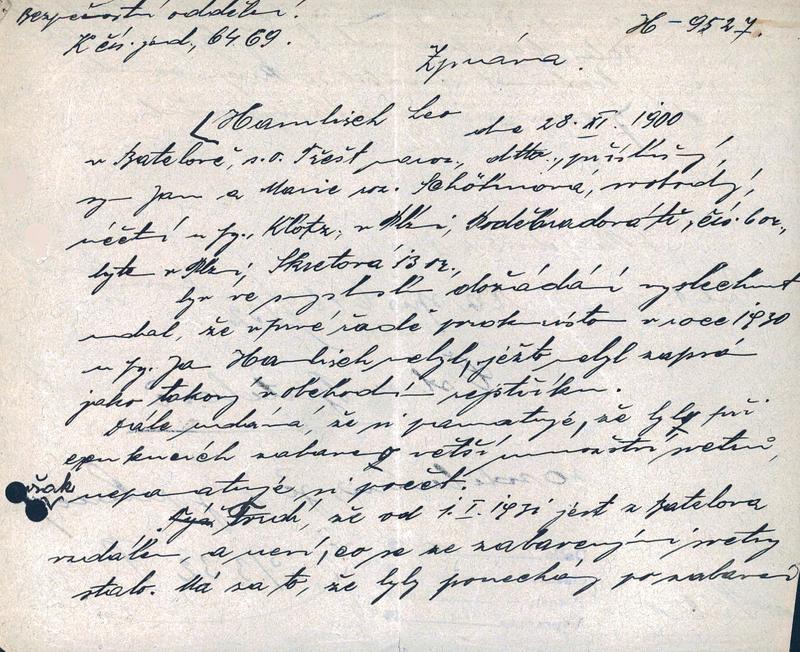 Bezpečnostní oddělení.
K čís. jed., 6469. H-9527.
Zpráva.
Hamlisch Leo dne 28. XI. 1900
v Batelově, s.o. Třešť naroz., dtto., příslušný,
syn Jan a Marie roz. Schöllinová, svobodný,
účetní u fy., Klotz, v Plzni, Poděbradova tř., čís. 6 oz.,
bytem v Plzni, Skretová 13 oz.,
byv ve smyslu dožádání vyslechnut
udal, že v prvé řadě prokuristou v roce 1930
u fy. Jan Hamlisch nebyl, ježto nebyl zapsán
jako takový v obchodním rejstříku.
Dále udává, že si pamatuje, že byly při
exekucích zabaveny větší množství svetrů,
však nepamatuje si počet.
Týž Tvrdí, že od 1. I. 1931 jest z Batelova
vzdálen, a neví, co se ze zabavenými svetry
stalo. Má za to, že byly ponechány po zabavení